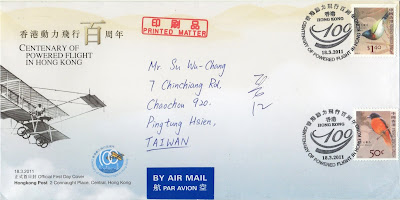 香港動力飛行百周年
CENTENARY OF
POWERED FLIGHT
IN HONG KONG
印刷品
PRINTED MATTER
Mr. Su Wu-Chang
7 Chinchiang Rd,
Chaochou 920.
Pingtung Hsien,
TAIWAN
BY AIR MAIL
航 PAR AVION 空
香港動力飛行百周年
香港
HONG KONG
100
18.3.2011
CENTENARY OF POWERED FLIGHT IN HONG KONG
$1.40
香港動力飛行百周年
香港
HONG KONG
100
18.3.2011
CENTENARY OF POWERED FLIGHT IN HONG KONG
50¢
18.3.2011
正式首日封 Official First Day Cover
Hongkong Post 2 Connaught Place, Central, Hong Kong